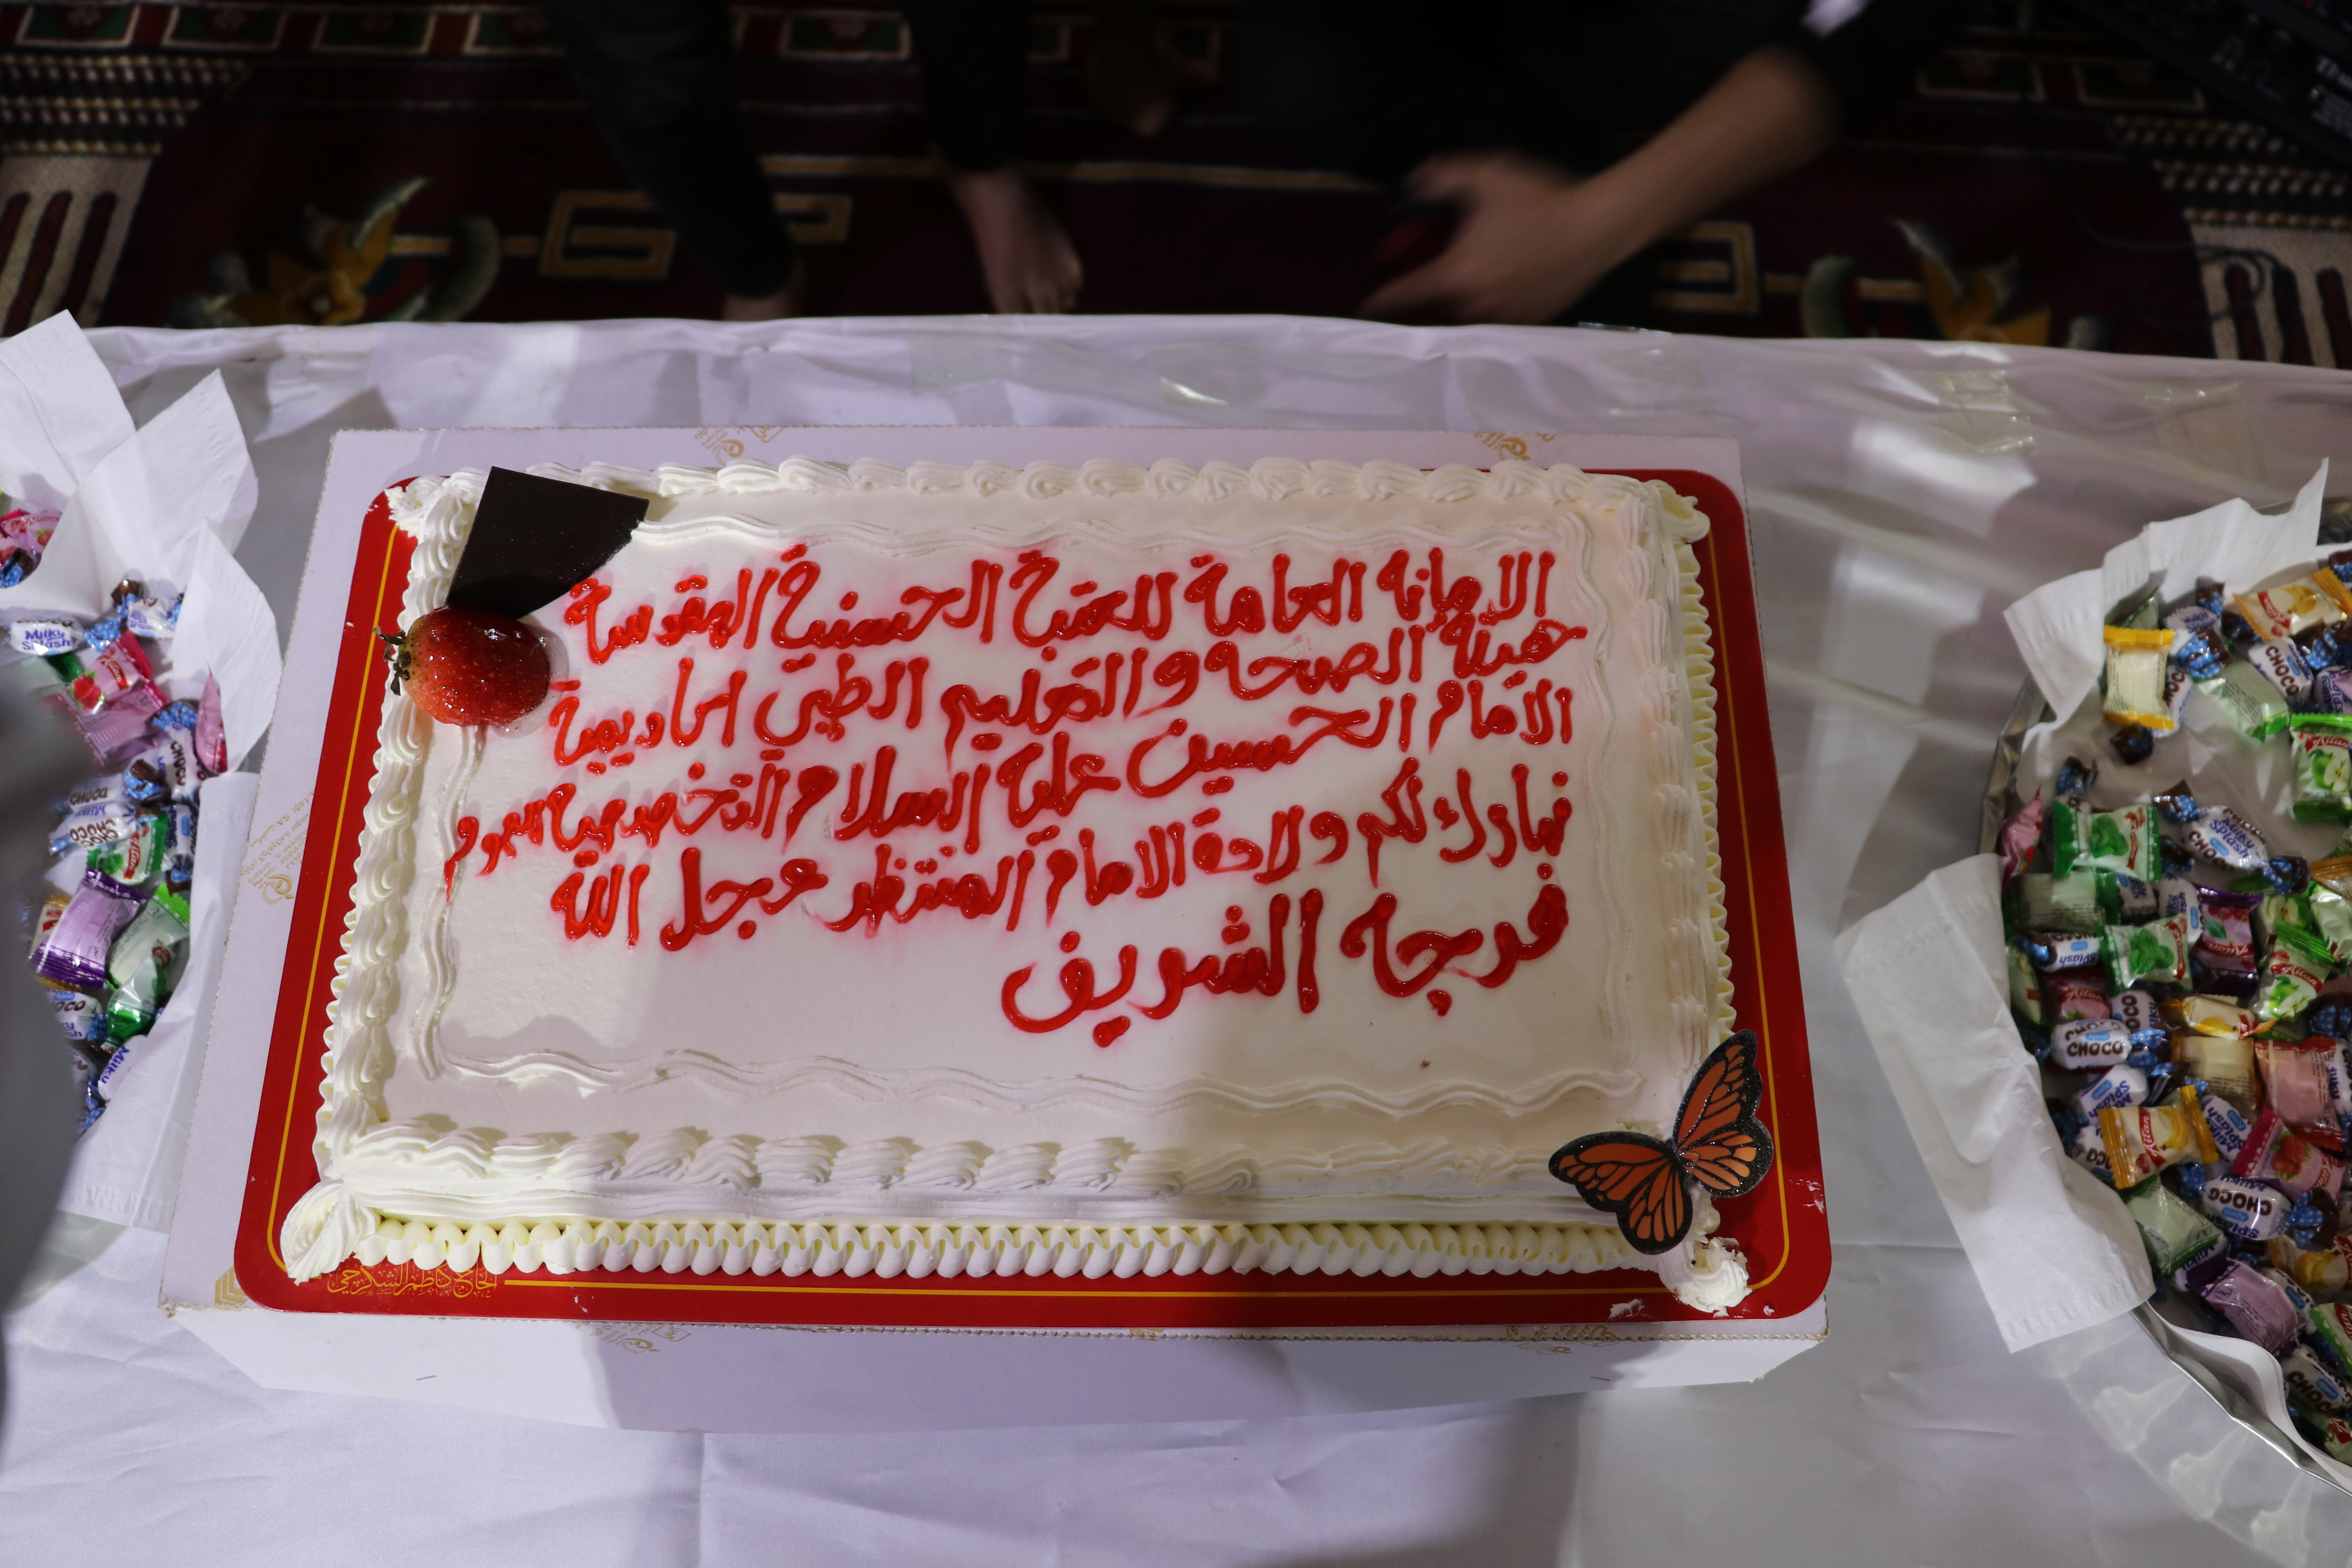 الامانه العامة للعتبة الحسنية المقدسة
هيئة الصحه والتعليم الطبي اكاديمية
الامام الحسين علية السلام التخصصية للتو
نبارك لكم ولادة الامام المنتظر عجل الله
فرجه الشريف
الحاج كاظم الشكرجي
Milky Splash
CHOCO
CHOCO
Milky Splash
CHOCO
CHOCO
Milky Splash
CHOCO